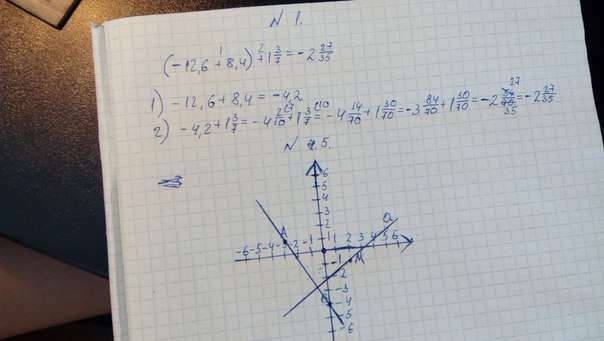 N 1.
(-12,6 + 8,4) + 1 3/7 = -2 27/35
1) -12,6 + 8,4 = -4,2
2) -4,2 + 1 3/7 = -4 2/10 + 1 3/7 = -4 14/70 + 1 30/70 = -3 84/70 + 1 30/70 = -2 54/70 = -2 27/35
N 5.
6
5
4
3
2
1
A
a
-6 -5 -4 -3 -2 -1 1 2 3 4 5 6
-1
M
-2
-3
-4
-6